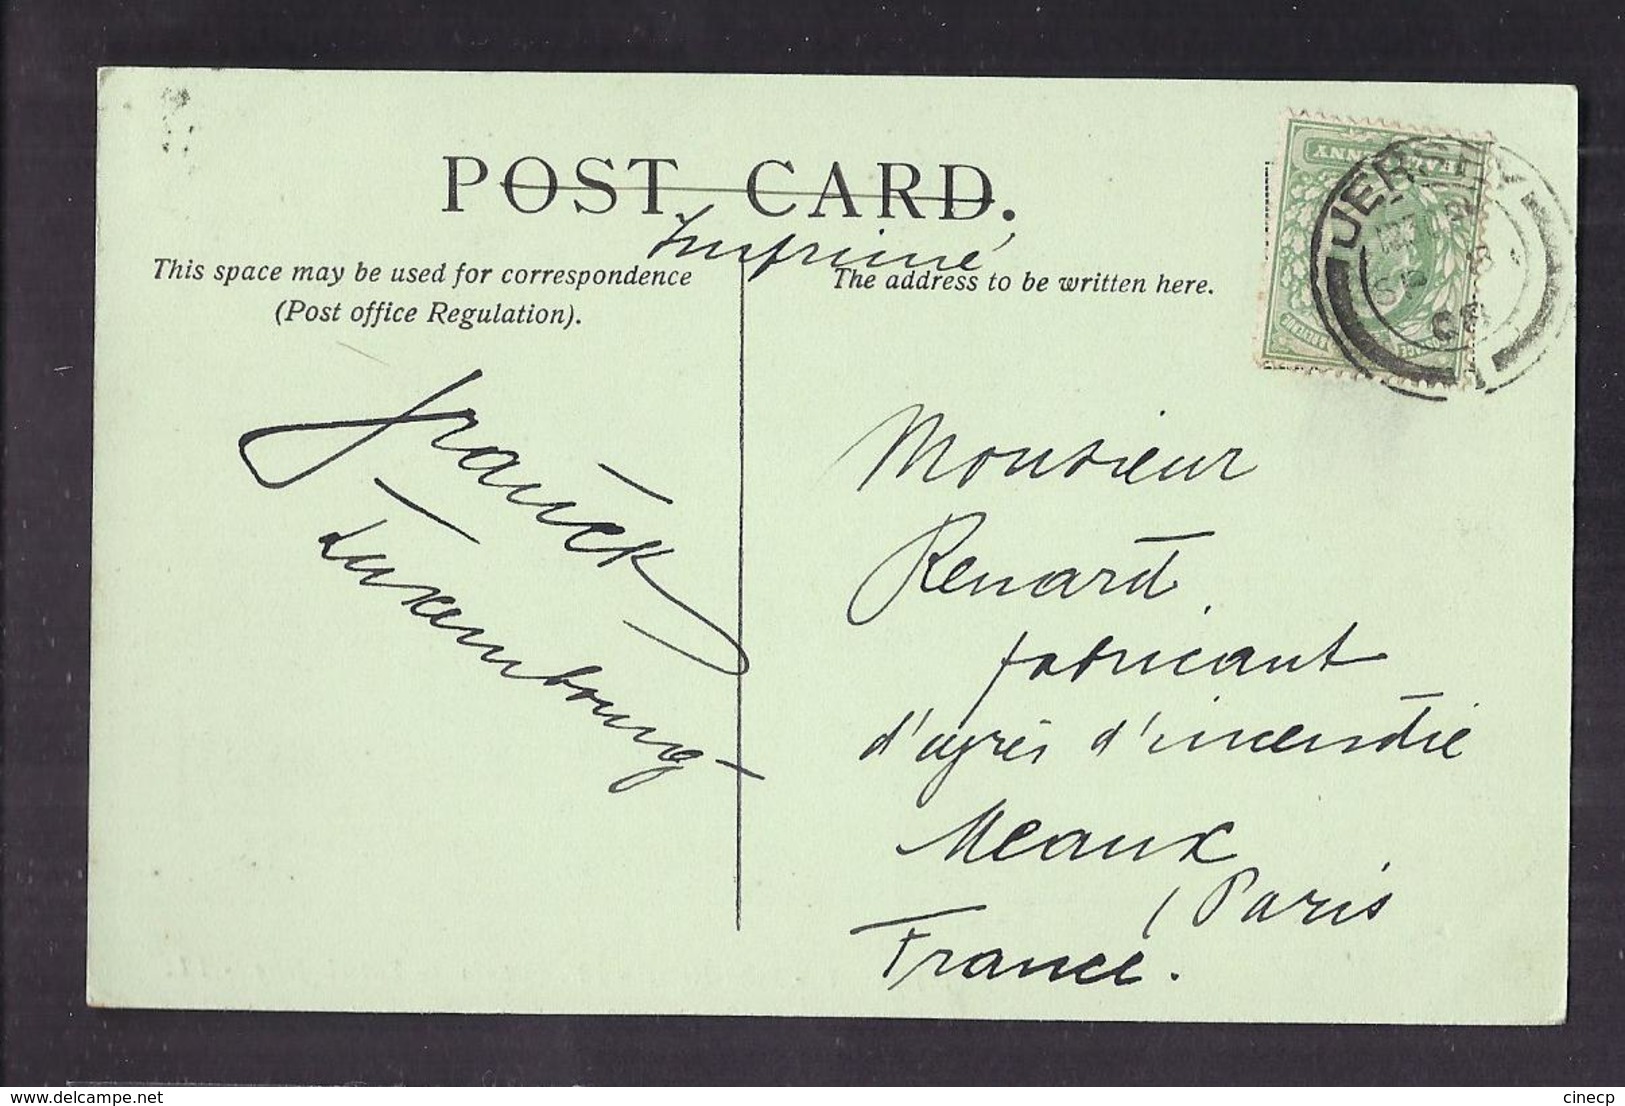 POST CARD.
Imprimé
This space may be used for correspondence
(Post office Regulation).
The address to be written here.
JERSEY
Franck
Luxembourg
Monsieur
Renard
fabricant
d'agrès d'incendie
Meaux
Paris
France.
delcampe.net
cinecp